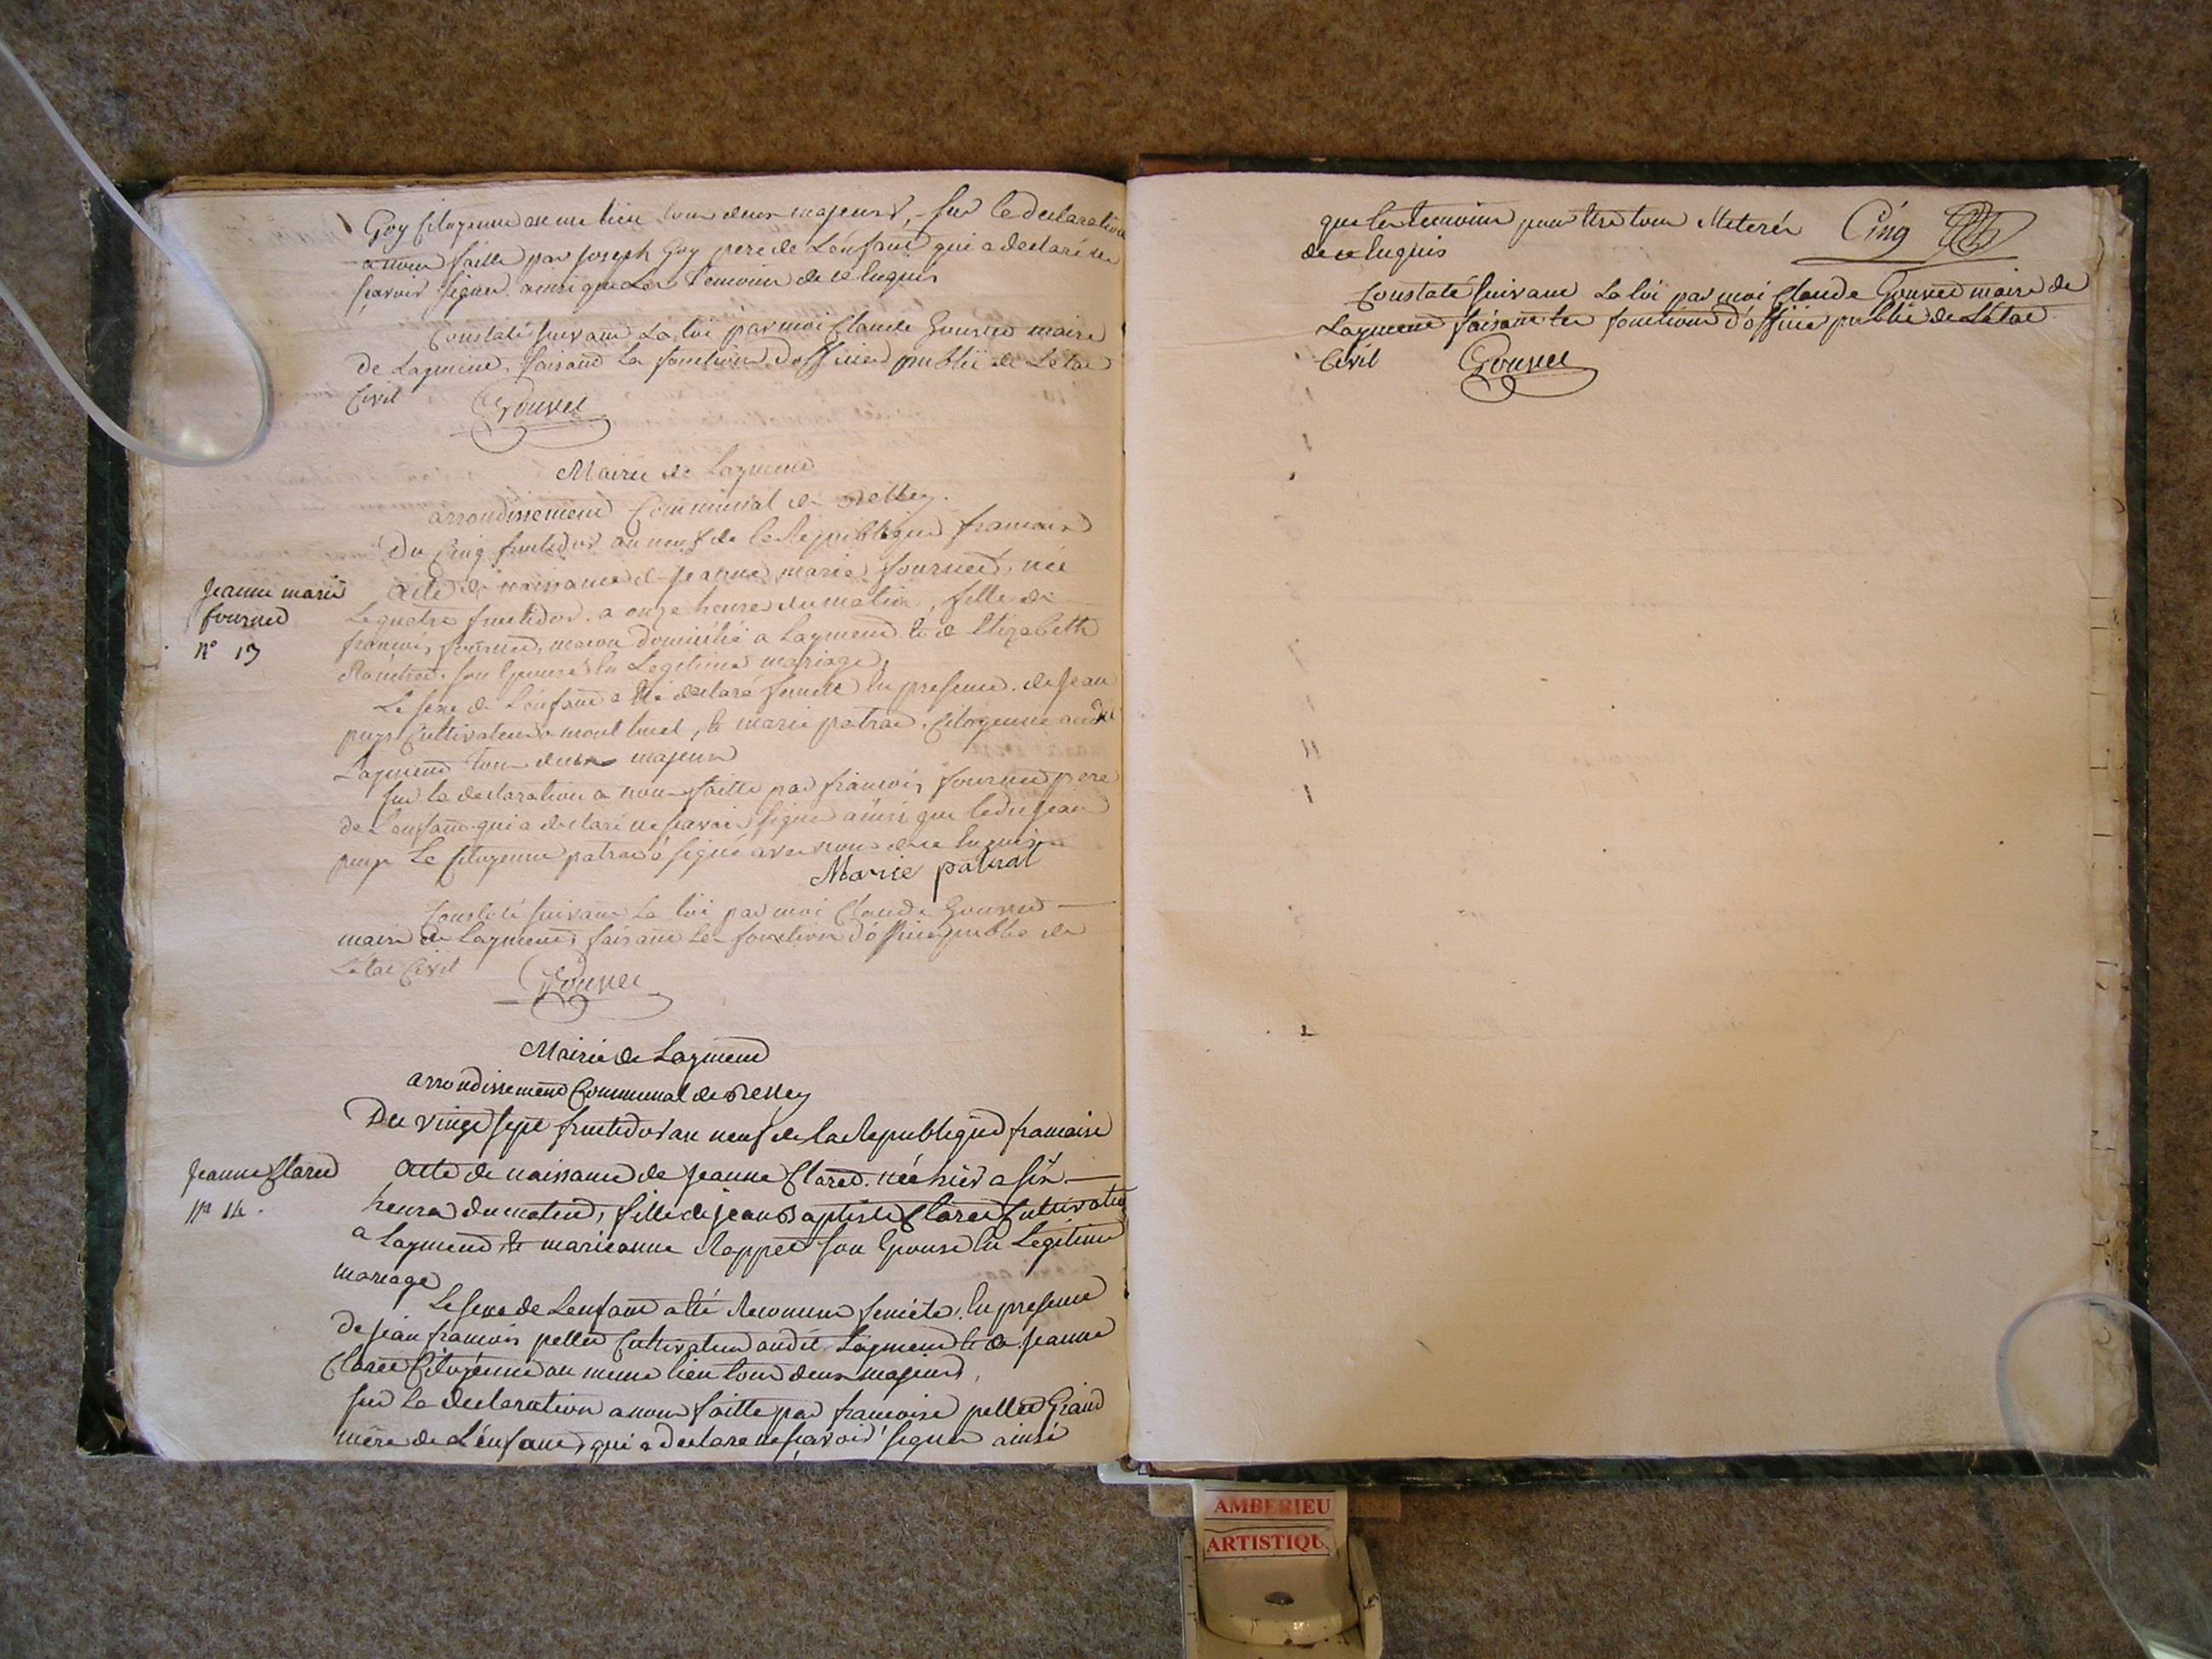 Goy Citoyenne au me lieu tous deux majeurs, sur la declaration
a nous faitte par joseph Goy pere de L'enfant qui a declaré ne
scavoir signer ainsi que Les temoins de ce Enquis
Constaté suivant La loi par moi Claude Gouvet maire
de Lagnieu, faisant les fonctions d'officier public de L'état
Civil Gouvet
Mairie de Lagnieu
arrondissement Communal de Belley.
Du Cinq fructidor an neuf de la Republique francaise
jeanne marie
fournet
n° 13
Acte de naissance de jeanne marie fournet, née
Le quatre fructidor a onze heures du matin, fille de
francois fournet, macon domicilié a Lagnieu et de Elizabeth
son Epouse En Legitime mariage,
Le sexe de L'enfant a eté declaré femele En presence de jean
puys Cultivateur a mont luel, et marie patrat, Citoyenne audit
Lagnieu tous deux majeurs
sur la declaration a nous faitte par francois fournet pere
de L'enfant qui a declaré ne scavoir signer ainsi que ledit jean
puys La Citoyenne patrat a signé avec nous de ce Enquis
Marie patrat
Constaté suivant La loi par moi Claude Gouvet
maire de Lagnieu, faisant Les fonctions d'officier public de
L'état Civil Gouvet
Mairie de Lagnieu
arrondissement Communal de Belley
Du vingt sept fructidor an neuf de la Republique francaise
jeanne Claret
n° 14.
Acte de naissance de jeanne Claret. née hier a six
heures du matin, fille de jean Baptiste Claret Cultivateur
a Lagnieu et marieanne Rappet son Epouse En Legitime
mariage
Le sexe de L'enfant a eté Reconnu femele, En presence
de jean francois pellet Cultivateur audit Lagnieu et de jeanne
Claret Citoyenne au meme lieu tous deux majeurs,
sur La declaration a nous faitte par francoise pellet Grand
mere de L'enfant, qui a declaré ne scavoir signer ainsi
que les temoins pour etre tous Cinq
de ce Enquis
Constaté suivant La loi par moi Claude Gouvet maire de
Lagnieu faisant les fonctions d'officier public de L'état
Civil Gouvet
AMBERIEU
ARTISTIQU